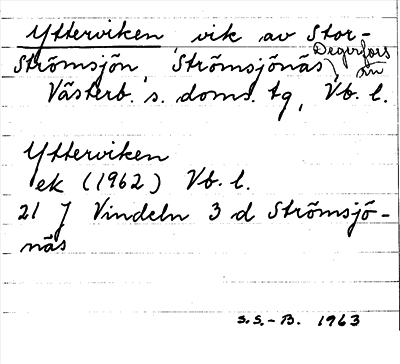 Ytterviken, vik av Stor-
Strömsjön, Strömsjönäs, Degerfors sn
Västerb. s. doms. tg, Vb. l.
Ytterviken
ek (1962) Vb. l.
21 J Vindeln 3 d Strömsjö-
näs
S.S.-B. 1963